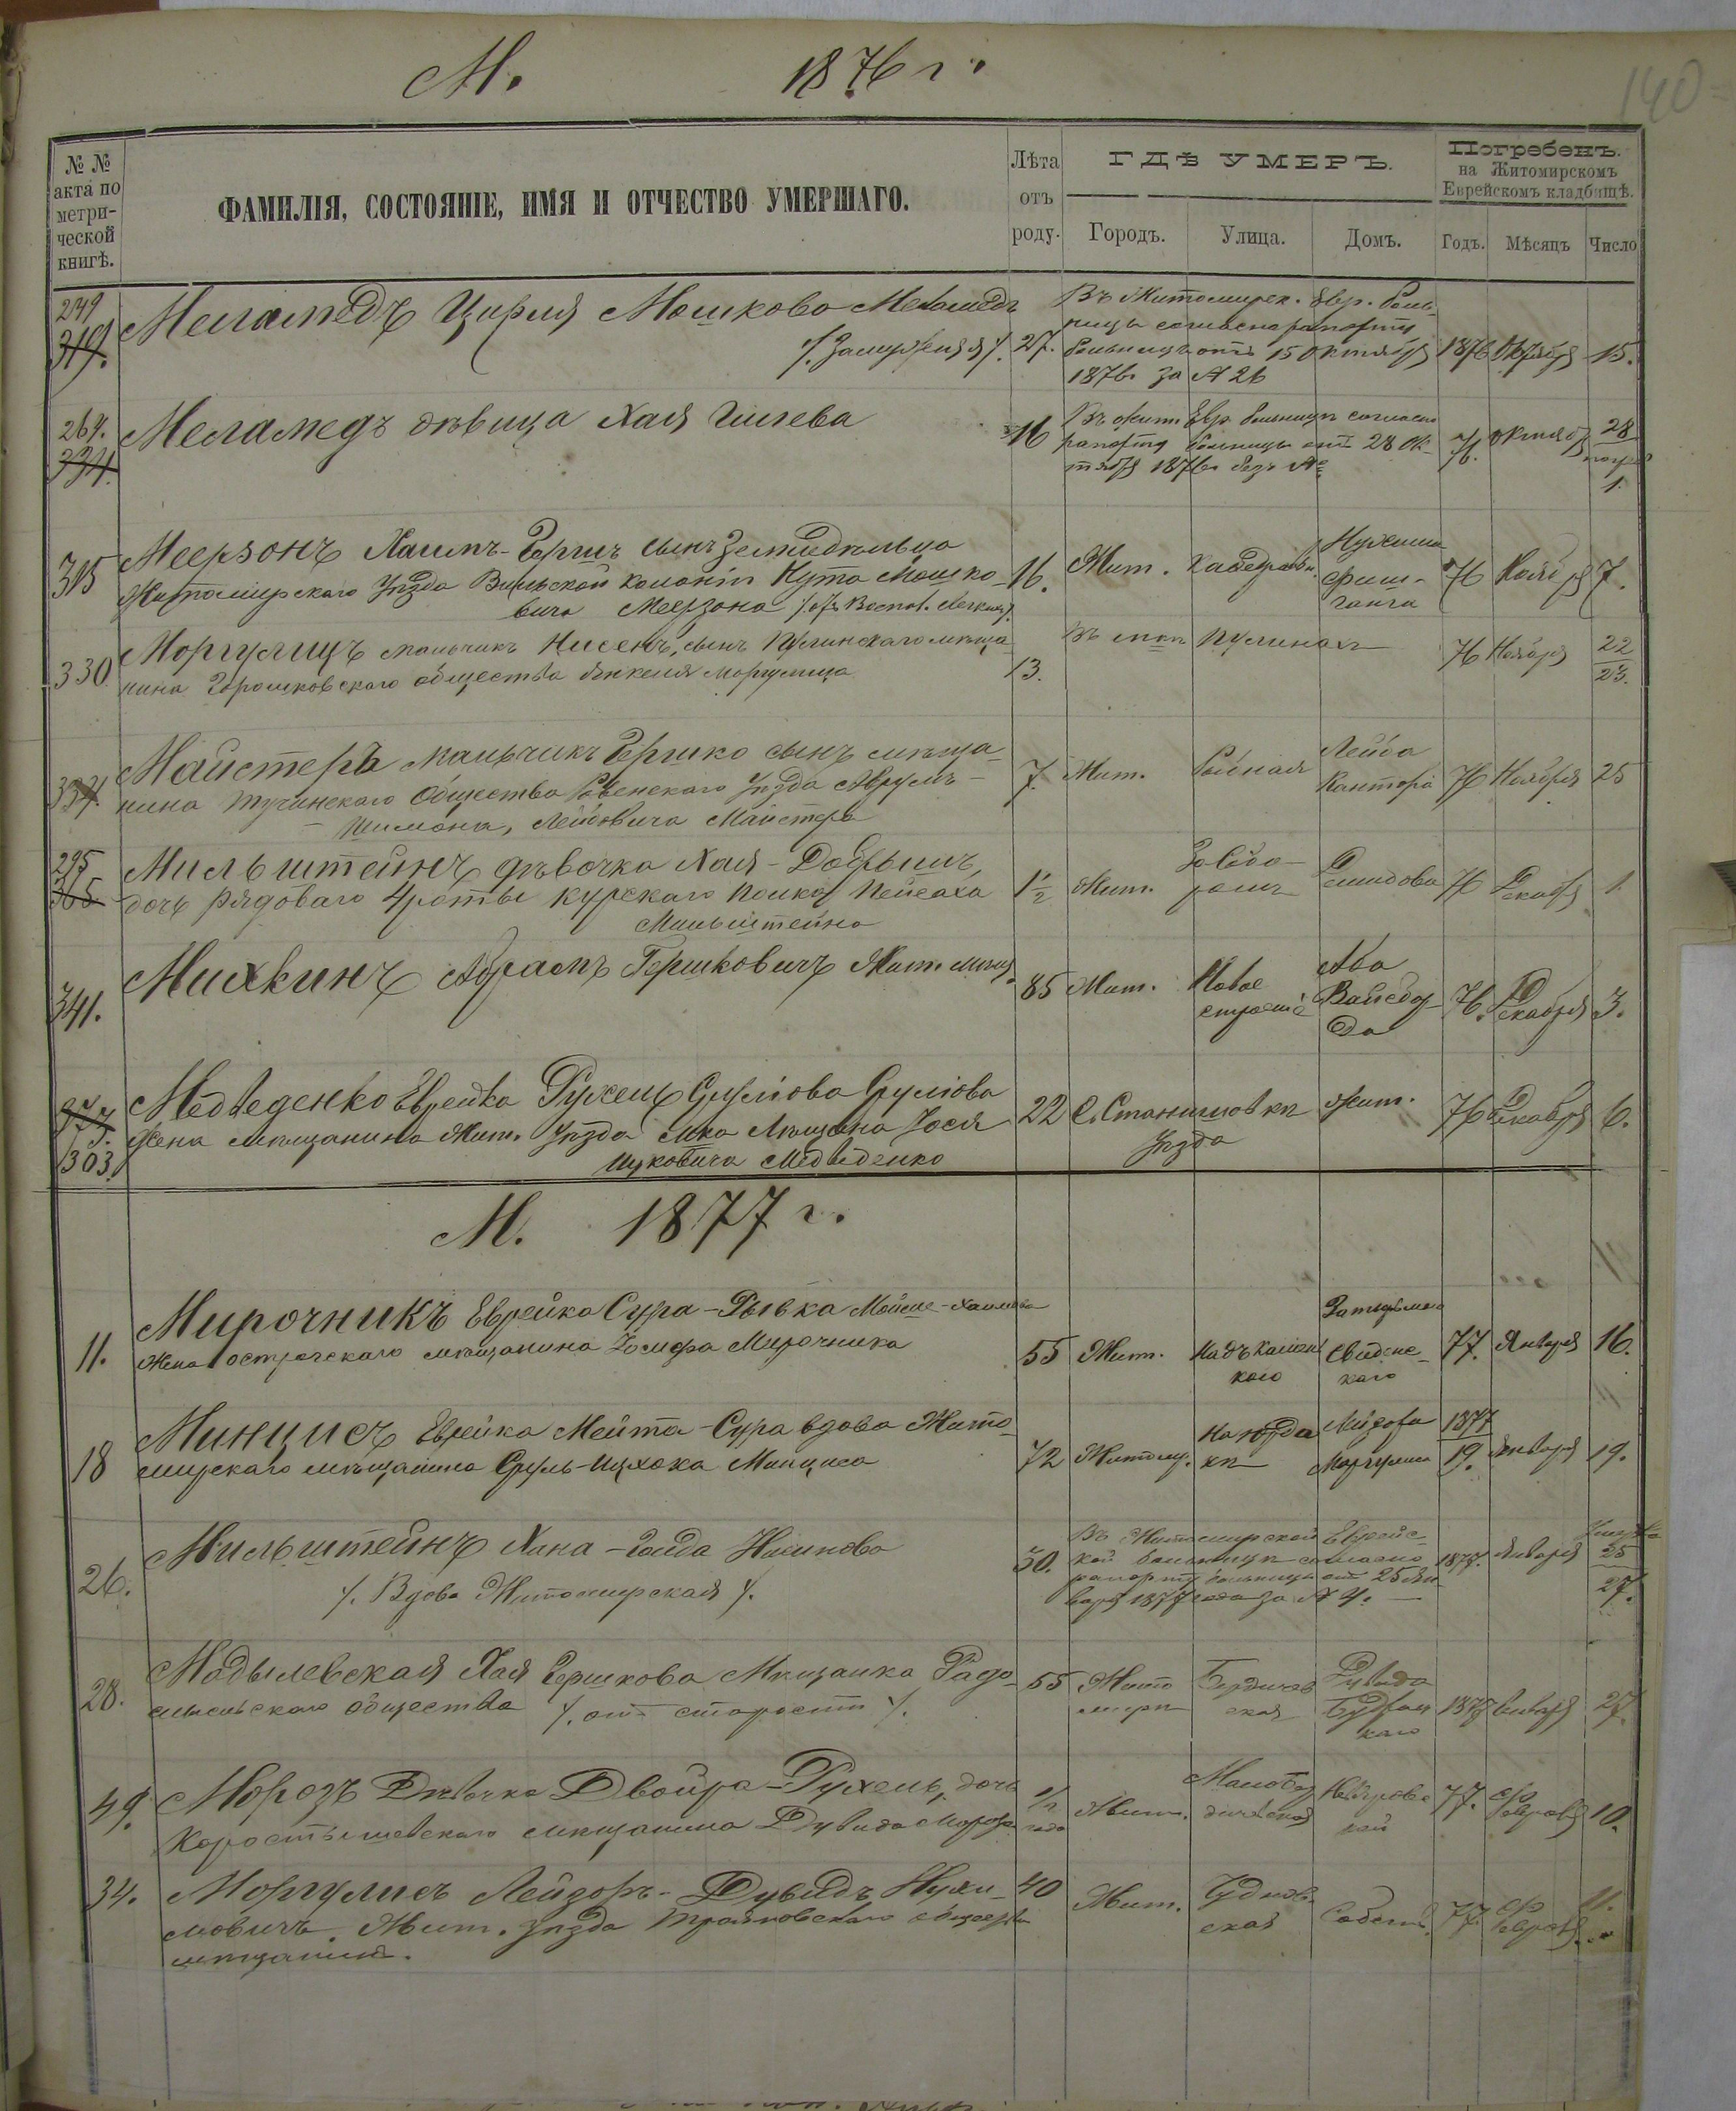 М. 1876 г.
140
№ № акта по метри- ческой книгѣ.
ФАМИЛІЯ, СОСТОЯНІЕ, ИМЯ И ОТЧЕСТВО УМЕРШАГО.
Лѣта отъ роду.
ГДѢ УМЕРЪ.
Городъ. Улица. Домъ.
Погребенъ.
на Житомирскомъ
Еврейскомъ кладбищѣ.
Годъ. Мѣсяцъ Число
249
319.
Меламедъ Цирля Мошкова Меламедъ
/. Замужняя /. 27.
Въ Житомирск. Евр. боль-
ницѣ согласно рапорту
больницы отъ 15 октября
1876 г. за № 26
1876 Октября 15.
264.
334.
Меламедъ дѣвица Хая
16
Въ Жит. Евр. больницѣ согласно
рапорту больницы отъ 28 Ок-
тября 1876 г. безъ №
76. октяб. 28
1.
315
Меерзонъ Хаимъ-Гершъ сынъ земледѣльца
Житомирскаго Уѣзда Вильской колоніи Нута Мошко-
вича Меерзона /. отъ Воспол. Легкихъ /.
16. Жит. Кафедральн.
Нухима
Фиш-
76 Ноября 7.
330.
Моргулицъ мальчикъ Нисенъ, сынъ Пулинскаго мѣща-
нина Горошковскаго общества Янкеля Моргулица
13. Въ мѣст. Пулинахъ 76 Ноября 22
23.
334.
Майстеръ мальчикъ Гершко сынъ мѣща-
нина Тучинскаго Общества Ровенскаго Уѣзда Аврумъ-
Шимона, Лейбовича Майстера
7. Жит. Рыбная
Лейба
Кантора
76 Ноября 25
295
365
Мильштейнъ дѣвочка Хая-Добрышъ,
дочь рядоваго 4 роты Курскаго полка Пейсаха
Мильштейна
1½ Жит. Демидова 76 Декабр. 1.
341.
Михкинъ Абрамъ Гершковичъ Жит. мѣщ.
85 Жит.
Новое
строеніе
Аба
76. Декабря 3.
377.
303
Медведенко Еврейка Рухель Срулiова Срулiова
Жена мѣщанина Жит. Уѣзда мка Лещина Іося
Ицковича Медведенко
22 С. Станишовкѣ Жит.
Уѣзда
76 Декабря 6.
М. 1877 г.
11.
Мирочникъ Еврейка Сура-Рывка Мойше-Хаимова
Жена острогскаго мѣщанина Іосифа Мирочника
55 Жит. Надъ Камен-
кою
Свидне-
каго
77. Января 16.
18
Минцисъ Еврейка Мейта-Сура вдова Жито-
мирскаго мѣщанина Сруль-Ицхока Минциса
72 Житом.
Лейзора
Моргулиса
1877
19. Января 19.
26.
Мильштейнъ Хана-Голда Насинова
/. Вдова Житомирская /.
30.
Въ Житомирской Еврейс-
кой больницѣ согласно
рапорту больницы отъ 25 Ян-
варя 1877 года за № 4.
1877. Января
25
27.
28.
Модылевская Хая Гершкова Мѣщанка Радо-
мысльскаго общества /. отъ старости /.
55 Жито-
мирѣ
Бердичев-
ская
Дувида
1877 Января 27.
49.
Морозъ Дѣвочка Двойра-Рухель, дочь
Коростышевскаго мѣщанина Дувида Мороза
½
года
Жит.
Мало Бер-
дичевская
77. Февраля 10.
34.
Моргулисъ Лейзоръ-Дувидъ Нухи-
мовичъ. Жит. уѣзда Трояновскаго общества
мѣщанинъ.
40 Жит.
Чуднов-
ская
Собств. 77. Февраля 11.